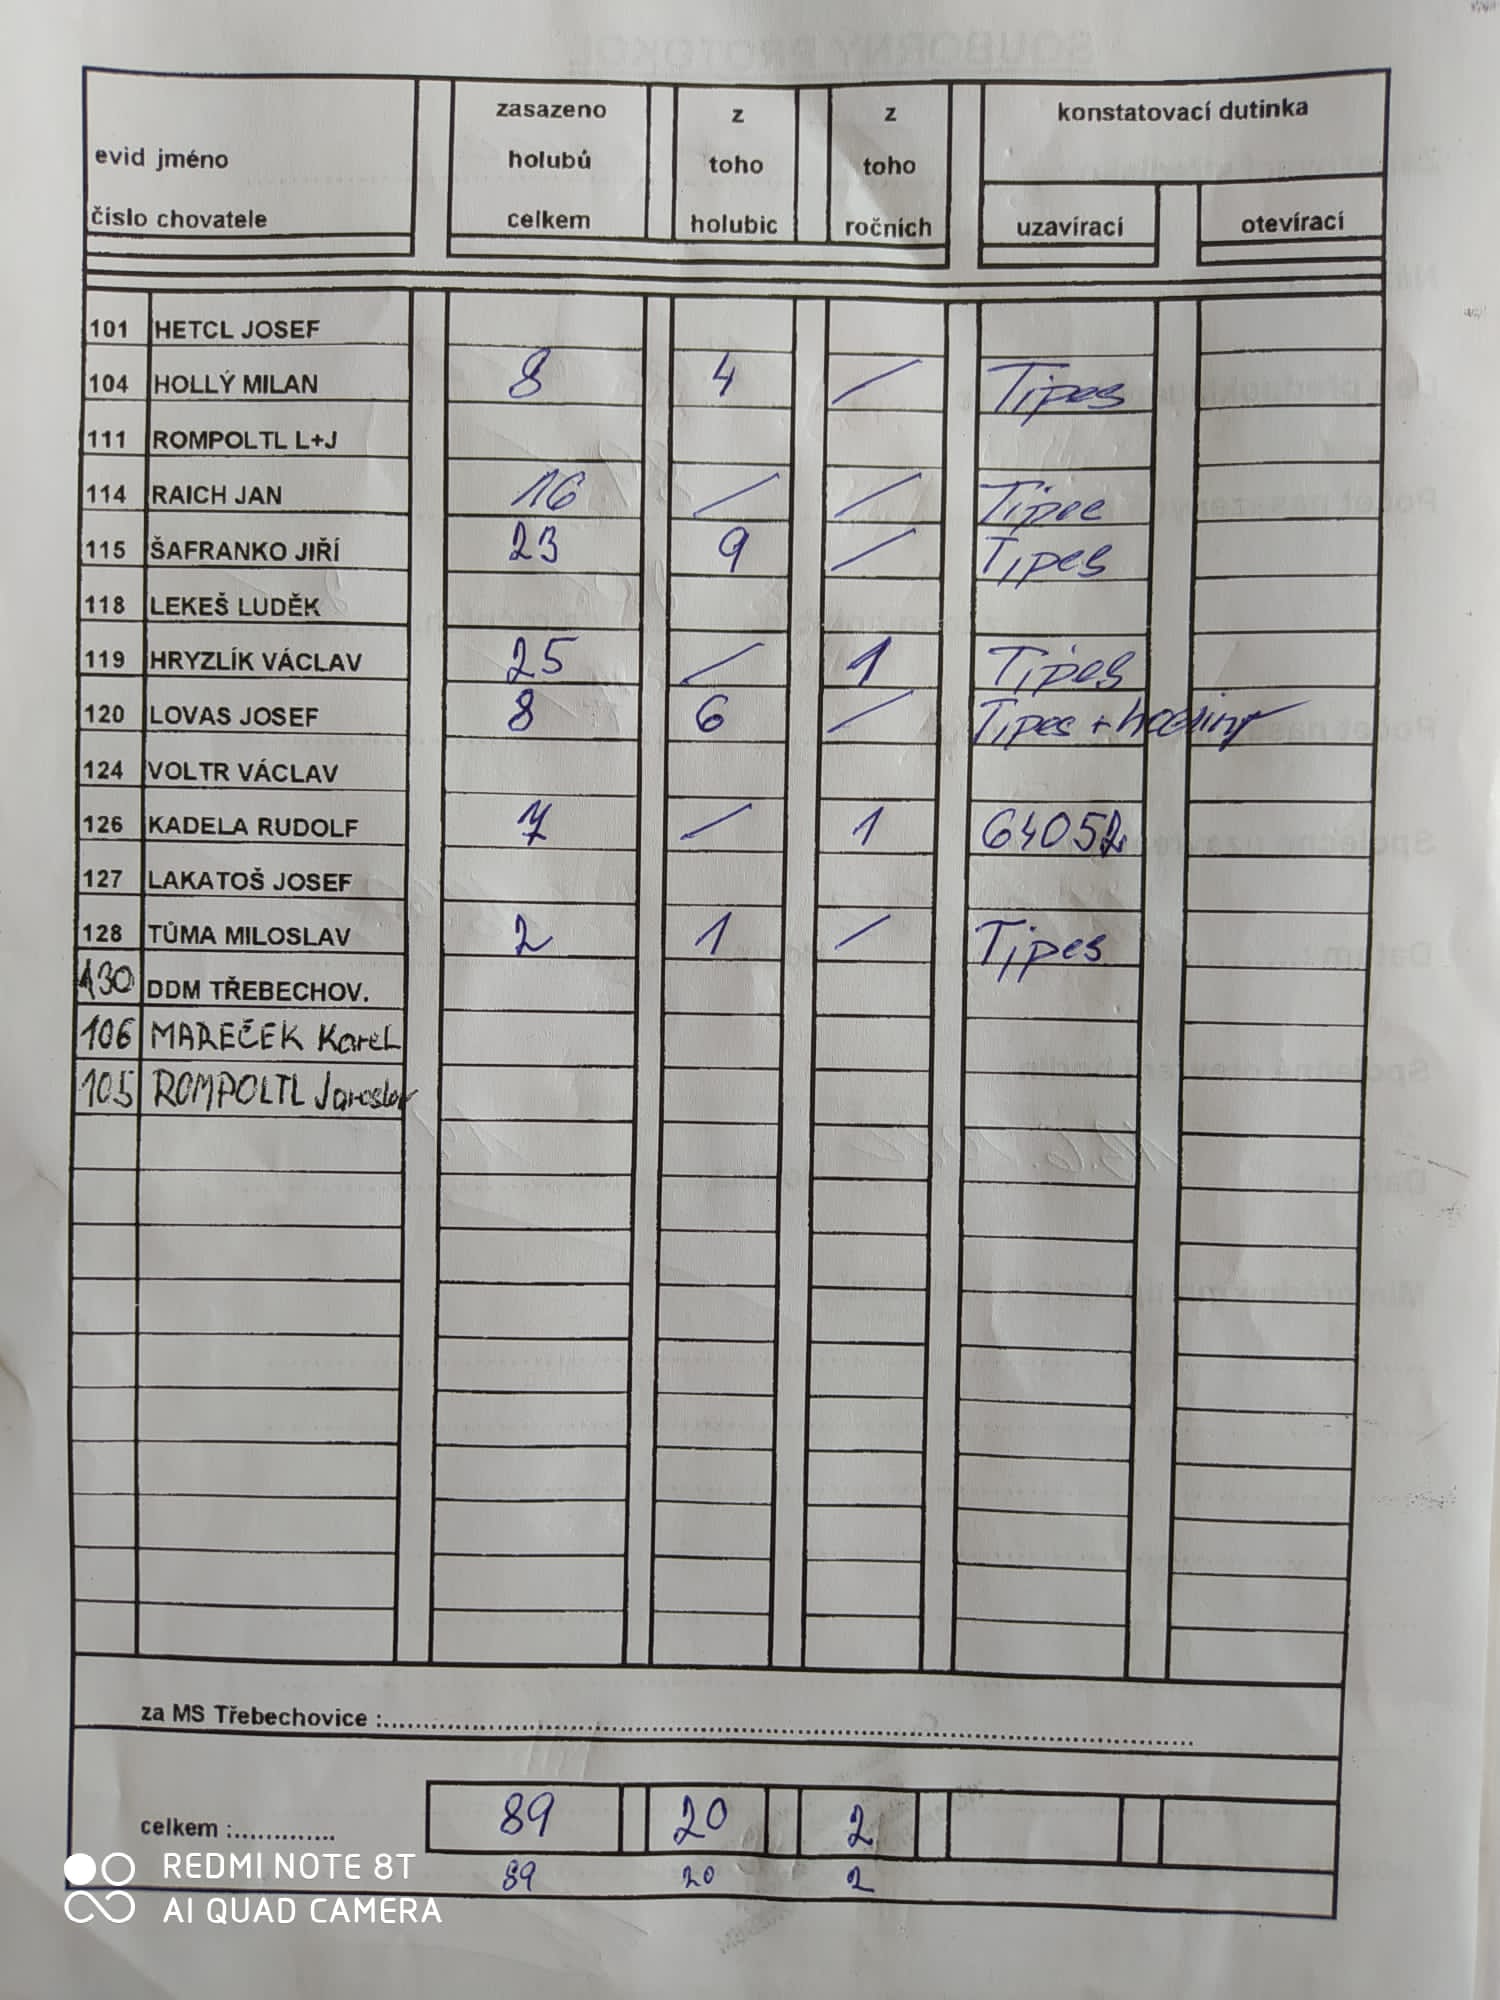 evid jméno
číslo chovatele
zasazeno
holubů
celkem
z
toho
holubic
z
toho
ročních
konstatovací dutinka
uzavírací
otevírací
101 HETCL JOSEF
104 HOLLÝ MILAN 8 4 / Tipes
111 ROMPOLTL L+J
114 RAICH JAN 16 / / Tipec
115 ŠAFRANKO JIŘÍ 23 9 / Tipes
118 LEKEŠ LUDĚK
119 HRYZLÍK VÁCLAV 25 / 1 Tipes
120 LOVAS JOSEF 8 6 / Tipes + hodiny
124 VOLTR VÁCLAV
126 KADELA RUDOLF 7 / 1 64052
127 LAKATOŠ JOSEF
128 TŮMA MILOSLAV 2 1 / Tipes
130 DDM TŘEBECHOV.
106 MAREČEK Karel
105 ROMPOLTL Jaroslav
za MS Třebechovice :
celkem :............. 89 20 2
89 20 2
REDMI NOTE 8T
AI QUAD CAMERA